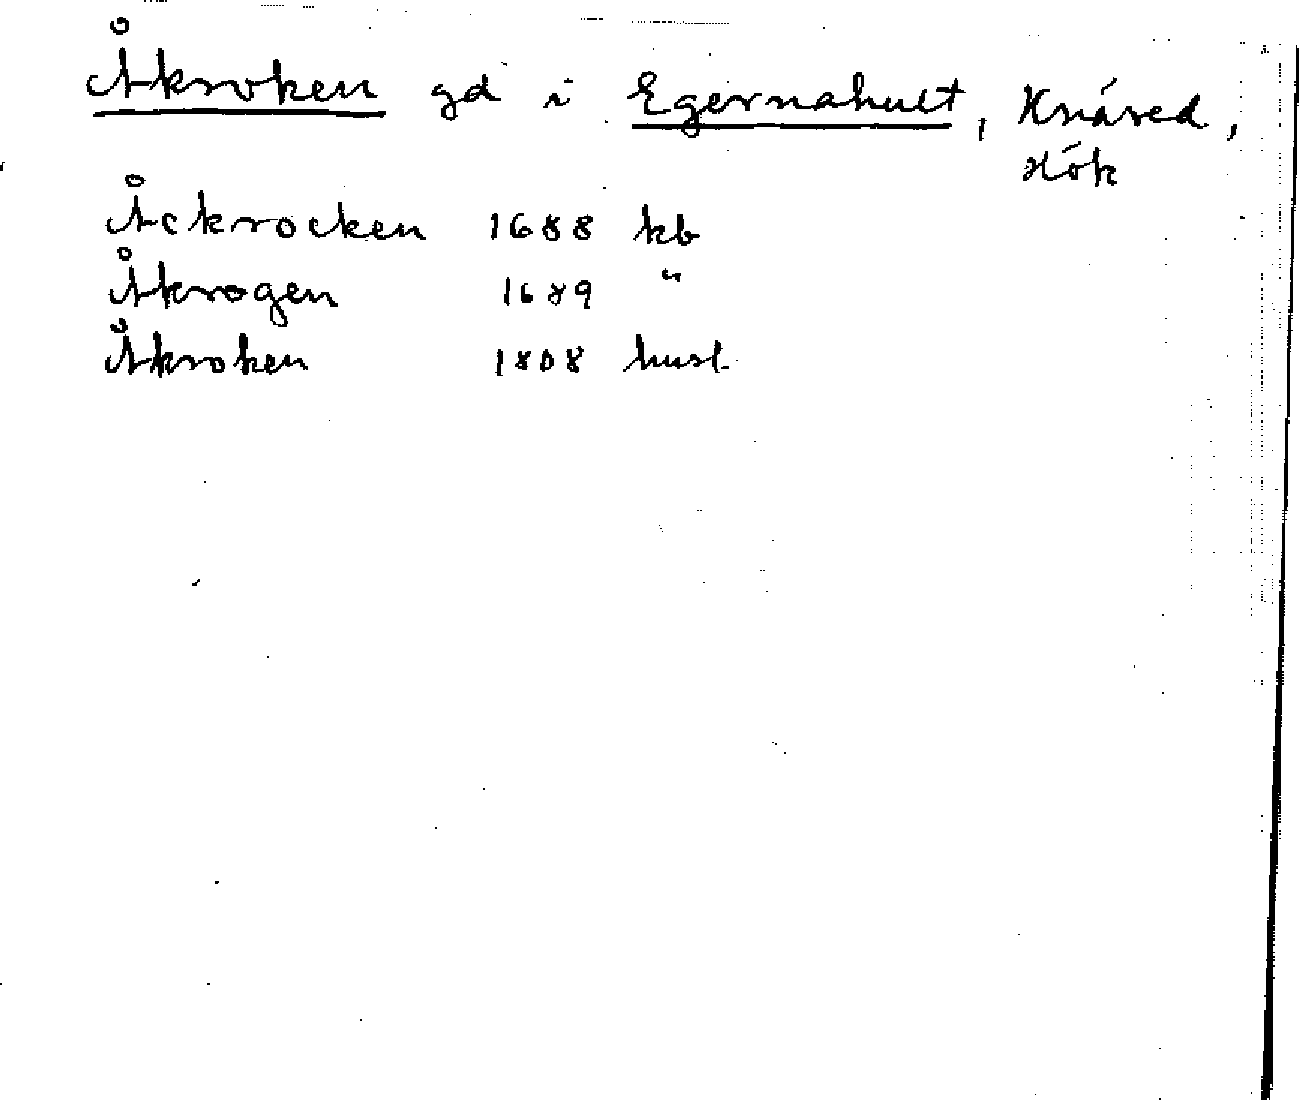 Åkroken gd i Egernahult, Knäred,
Hök
Åckrocken 1688 kb
Åkrogen 1689 "
Åkroken 1808 husl